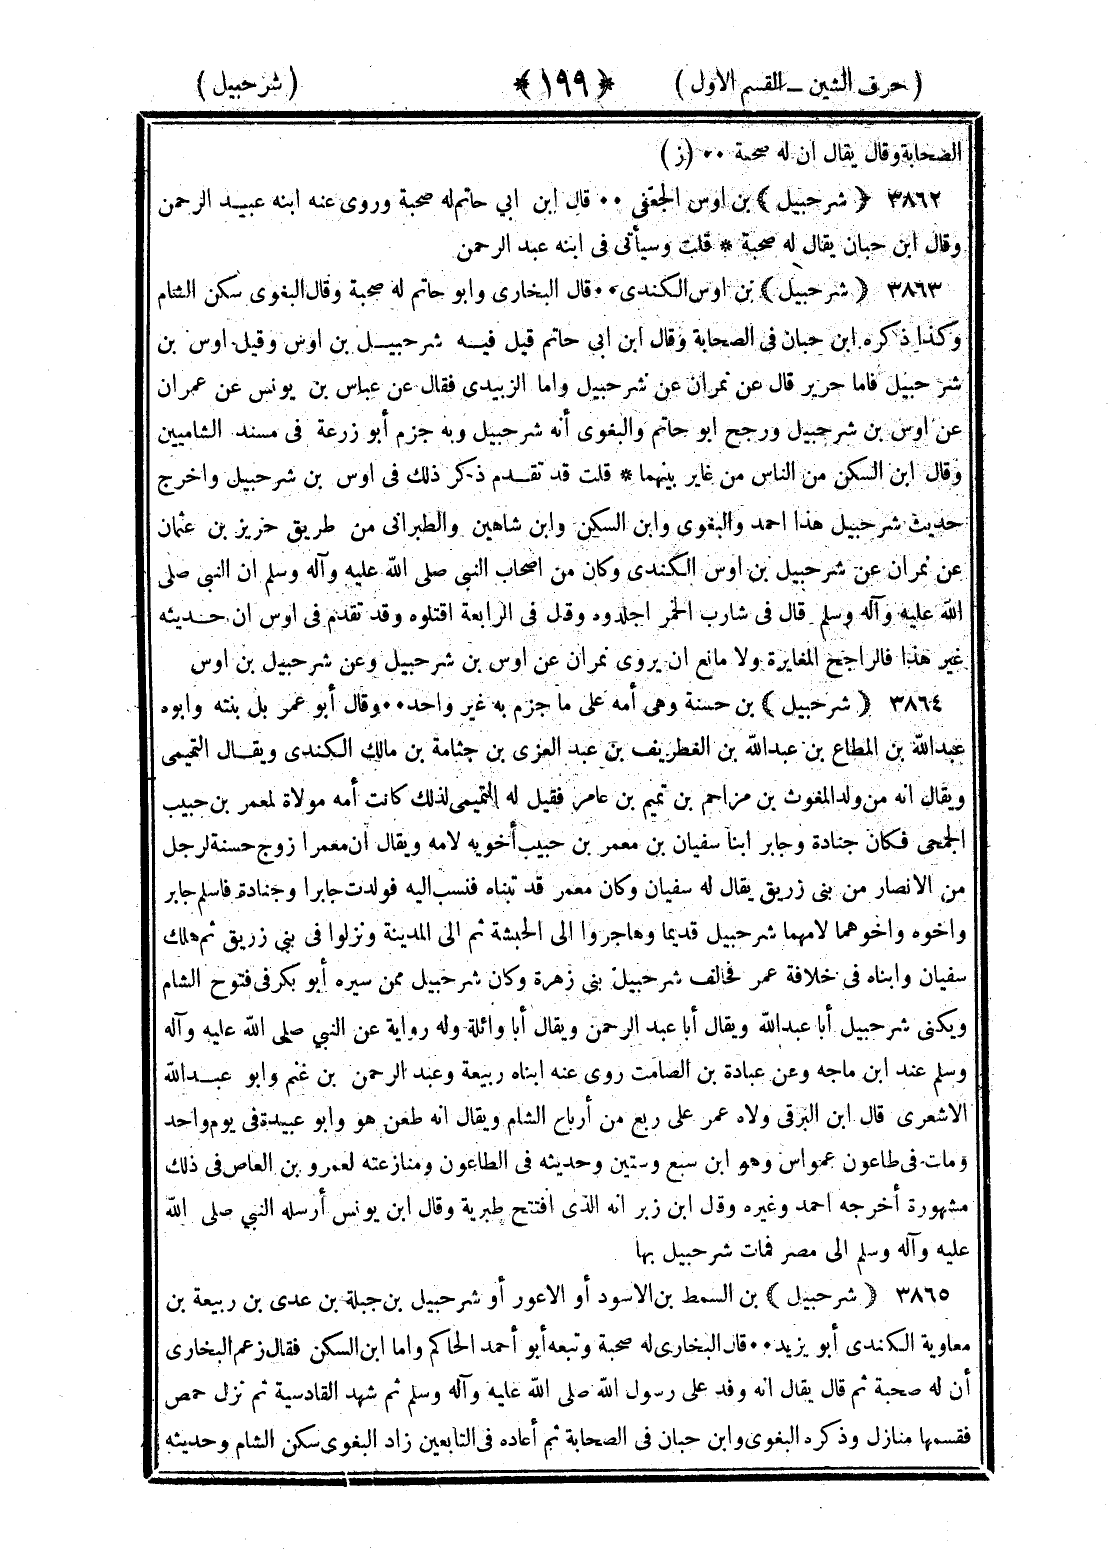 ( حرف الشين ــ القسم الاول ) ﴿ ١٩٩ ﴾ ( شرحبيل )
الصحابة وقال يقال ان له صحبة ٠٠ (ز)
٣٨٦٢ ﴿ شرحبيل ﴾ بن اوس الجعفي ٠٠ قال ابن ابي حاتم له صحبة وروى عنه ابنه عبيد الرحمن
وقال ابن حبان يقال له صحبة * قلت وسيأتى فى ابنه عبد الرحمن
٣٨٦٣ ﴿ شرحبيل ﴾ بن اوس الكندى ٠٠ قال البخارى وابو حاتم له صحبة وقال البغوى سكن الشام
وكذا ذكره ابن حبان فى الصحابة وقال ابن ابي حاتم قيل فيه شرحبيل بن اوس وقيل اوس بن
شرحبيل فاما حرير قال عن نمران عن شرحبيل واما الزبيدى فقال عن عباس بن يونس عن عمران
عن اوس بن شرحبيل ورجح ابو حاتم والبغوى أنه شرحبيل وبه جزم أبو زرعة فى مسند الشاميين
وقال ابن السكن من الناس من غاير بينهما * قلت قد تقدم ذكر ذلك فى اوس بن شرحبيل واخرج
حديث شرحبيل هذا احمد والبغوى وابن السكن وابن شاهين والطبرانى من طريق حريز بن عثمان
عن نمران عن شرحبيل بن اوس الكندى وكان من اصحاب النبي صلى الله عليه وآله وسلم ان النبي صلى
الله عليه وآله وسلم قال فى شارب الخمر اجلدوه وقل فى الرابعة اقتلوه وقد تقدم فى اوس ان حديثه
غير هذا فالراجح المغايرة ولا مانع ان يروى نمران عن اوس بن شرحبيل وعن شرحبيل بن اوس
٣٨٦٤ ﴿ شرحبيل ﴾ بن حسنة وهى أمه على ما جزم به غير واحد ٠٠ وقال أبو عمر بل بنته وابوه
عبدالله بن المطاع بن عبدالله بن الغطريف بن عبد العزى بن جثامة بن مالك الكندى ويقال التميمى
ويقال انه من ولد المغوث بن مزاحم بن تميم بن عامر فقيل له التميمى لذلك كانت أمه مولاة لمعمر بن حبيب
الجمحى فكان جنادة وجابر ابنا سفيان بن معمر بن حبيب أخويه لامه ويقال ان معمرا زوج حسنة لرجل
من الانصار من بنى زريق يقال له سفيان وكان معمر قد تبناه فنسب اليه فولدت جابرا وجنادة فاسلم جابر
واخوه واخوهما لامهما شرحبيل قديما وهاجروا الى الحبشة ثم الى المدينة ونزلوا فى بني زريق ثم هلك
سفيان وابناه فى خلافة عمر فحالف شرحبيل بني زهرة وكان شرحبيل ممن سيره أبو بكر فى فتوح الشام
ويكنى شرحبيل أبا عبدالله ويقال أبا عبد الرحمن ويقال أبا وائلة وله رواية عن النبي صلى الله عليه وآله
وسلم عند ابن ماجه وعن عبادة بن الصامت روى عنه ابناه ربيعة وعبد الرحمن بن غنم وابو عبدالله
الاشعرى قال ابن البرقى ولاه عمر على ربع من أرباع الشام ويقال انه طعن هو وابو عبيدة فى يوم واحد
ومات فى طاعون عمواس وهو ابن سبع وستين وحديثه فى الطاعون ومنازعته لعمرو بن العاص فى ذلك
مشهورة أخرجه احمد وغيره وقل ابن زبر انه الذى افتتح طبرية وقال ابن يونس أرسله النبي صلى الله
عليه وآله وسلم الى مصر فمات شرحبيل بها
٣٨٦٥ ﴿ شرحبيل ﴾ بن السمط بن الاسود أو الاعور أو شرحبيل بن جبلة بن عدى بن ربيعة بن
معاوية الكندى أبو يزيد ٠٠ قال البخارى له صحبة وتبعه أبو أحمد الحاكم واما ابن السكن فقال زعم البخارى
أن له صحبة ثم قال يقال انه وفد على رسول الله صلى الله عليه وآله وسلم ثم شهد القادسية ثم نزل حمص
فقسمها منازل وذكره البغوى وابن حبان فى الصحابة ثم أعاده فى التابعين زاد البغوى سكن الشام وحديثه